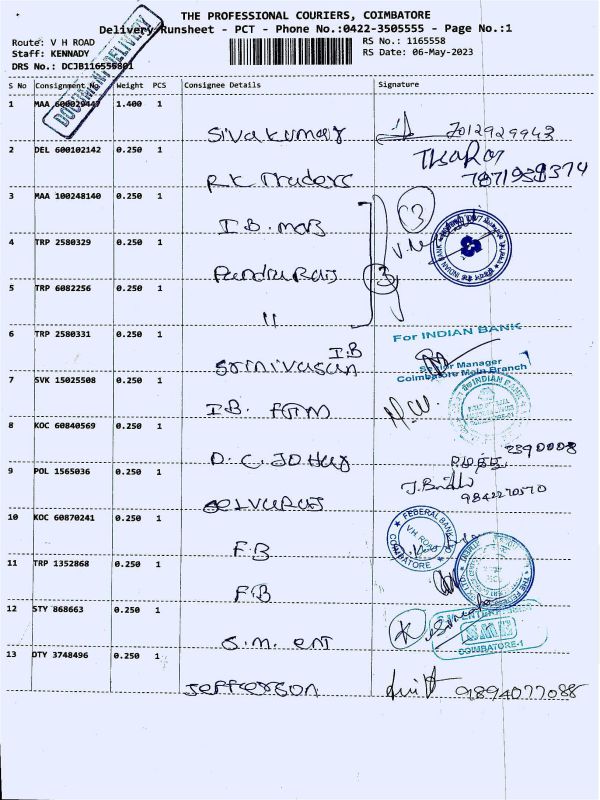 THE PROFESSIONAL COURIERS, COIMBATORE
Delivery Runsheet - PCT - Phone No.:0422-3505555 - Page No.:1
Route: V H ROAD
RS No.: 1165558
Staff: KENNADY
RS Date: 06-May-2023
DRS No.: DCJB116555801
DOCUMENT DELIVERY
S No Consignment No Weight PCS Consignee Details Signature
1 MAA 600029447 1.400 1
Sivakumar 7012929943
2 DEL 600102142 0.250 1
RK Traders
3 MAA 100248140 0.250 1
I.B. 3
4 TRP 2580329 0.250 1
3
INDIAN BANK
5 TRP 6082256 0.250 1
"
For INDIAN BANK
6 TRP 2580331 0.250 1
I.B
Srinivasan
Senior Manager
Coimbatore Main Branch
7 SVK 15025508 0.250 1
I.B.
INDIAN BANK
8 KOC 60840569 0.250 1
2390008
D.C.
9 POL 1565036 0.250 1
9842270570
Selvaraj
10 KOC 60870241 0.250 1
FEDERAL BANK
VH ROAD
COIMBATORE
F.B
11 TRP 1352868 0.250 1
F.B
12 STY 868663 0.250 1
S.M. ENT
COIMBATORE-1
13 DTY 3748496 0.250 1
Jefferson 9894077088